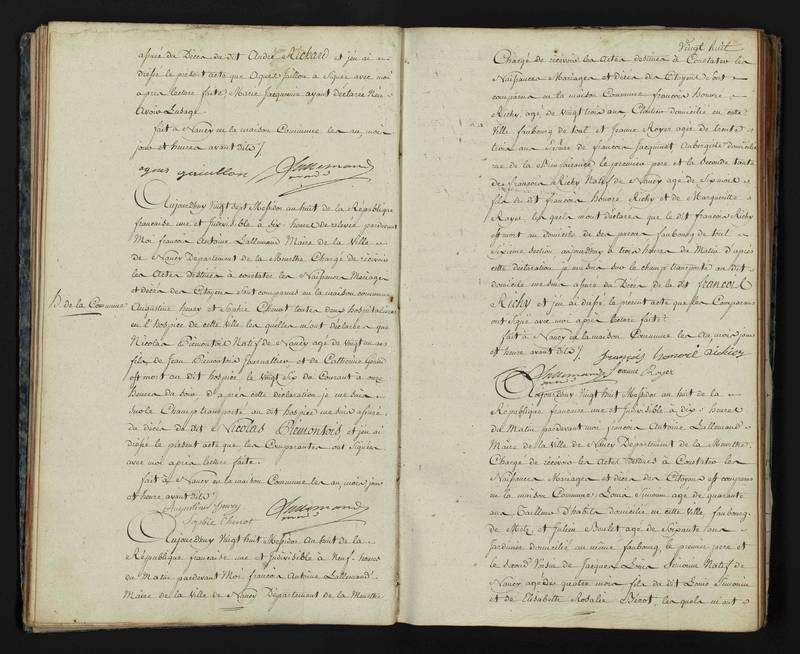 assuré du Décès du dit André Richard et j'en ai
dressé le présent acte que Agnès a Signée avec moi
après lecture faite Marie Jacquemin ayant déclarée n'en
avoir L'usage
fait à Nancy en la maison Commune les an, mois
jour et heures avant dits /.
agnes Lallemand
maire
Aujourdhuy Vingt sept Messidor an huit de la République
française une et Indivisible à six heures de relevée pardevant
Moi françois Antoine Lallemand Maire de la Ville
de Nancy Département de la Meurthe Chargé de recevoir
les Actes destinés à constater les Naissances Mariages
et décès des Citoyens Sont comparues en la maison commune
h. de la Commune
Augustine henry et Sophie Thirot toutes deux hospitalières
en L'hospice de cette Ville les quelles m'ont déclarées que
Nicolas Piémontois Natif de Nancy agé de Vingt un ans
fils de Jean Piémontois Journallier et de Catherine
est mort au dit hospice le Vingt Six du Courant à onze
heures du Soir d'après cette déclaration je me suis
Sur le Champ transporté au dit hospice me suis assuré
du décès du dit Nicolas Piémontois et j'en ai
dressé le présent acte que les Comparantes ont Signées
avec moi après lecture faite
fait à Nancy en la maison Commune les an, mois jour
et heure avant dits /.
Augustine henry
Sophie Thirot Lallemand
maire
Aujourdhuy Vingt huit Messidor an huit de la
République française une et Indivisible à Neuf heures
du Matin pardevant Moi françois Antoine Lallemand
Maire de la Ville de Nancy Département de la Meurthe
Vingt huit
Chargé de recevoir les Actes destinés à Constater les
Naissances Mariages et décès des Citoyens Sont
comparus en la maison Commune françois honoré
Richy, agé de Vingt trois ans Cloutier domicilié en cette
Ville faubourg de toul et Jeanne Royer agée de trente
trois ans Epouse de françois Jacquinet Aubergiste domiciliée
rue de la Bienfaisance le premier père et la Seconde tante
de françois Richy Natif de Nancy agé de Six mois
fils du dit françois honoré Richy et de Marguerite
Royer, les quels m'ont déclarés que le dit françois Richy
est mort au domicile de ses père et mère faubourg de toul
Sixième Section aujourdhuy à trois heures du Matin d'après
cette déclaration je me suis sur le champ transporté au dit
domicile me suis assuré du Décès du dit françois
Richy et j'en ai dressé le présent acte que les Comparans
ont Signé avec moi après lecture faite
fait à Nancy en la maison Commune les an, mois jour
et heure avant dits /. françois honoré Richy
Lallemand Jeanne Royer
maire
Aujourdhuy Vingt huit Messidor an huit de la
République française une et Indivisible à dix heures
du Matin pardevant moi françois Antoine Lallemand
Maire de la Ville de Nancy Département de la Meurthe
Chargé de recevoir les Actes destinés à Constater les
Naissances Mariages et décès des Citoyens est comparu
en la maison Commune Louis Simonin agé de quarante
ans Tailleur D'habits domicilié en cette Ville, faubourg
de Metz et Julien Boulet agé de Soixante ans
Jardinier domicilié au même faubourg, le premier père et
le second Voisin de Jacques Louis Simonin Natif de
Nancy agé de quatre mois fils du dit Louis Simonin
et de Elisabeth Rosalie Bénot, les quels m'ont